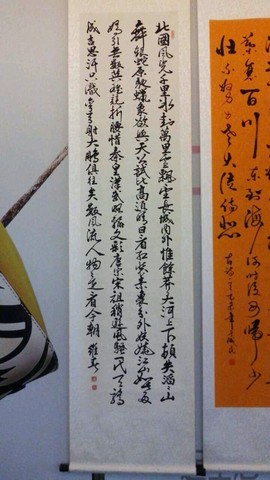 北國風光千里冰封萬里雪飄望長城內外惟餘莽莽大河上下頓失滔滔山
舞銀蛇原馳蠟象欲與天公試比高須晴日看紅裝素裹分外妖嬈江山如此多
嬌引無數英雄競折腰惜秦皇漢武略輸文彩唐宗宋祖稍遜風騷一代天驕
成吉思汗只識彎弓射大鵰俱往矣數風流人物還看今朝
百川東到海何時復西歸少
壯不努力老大徒傷悲